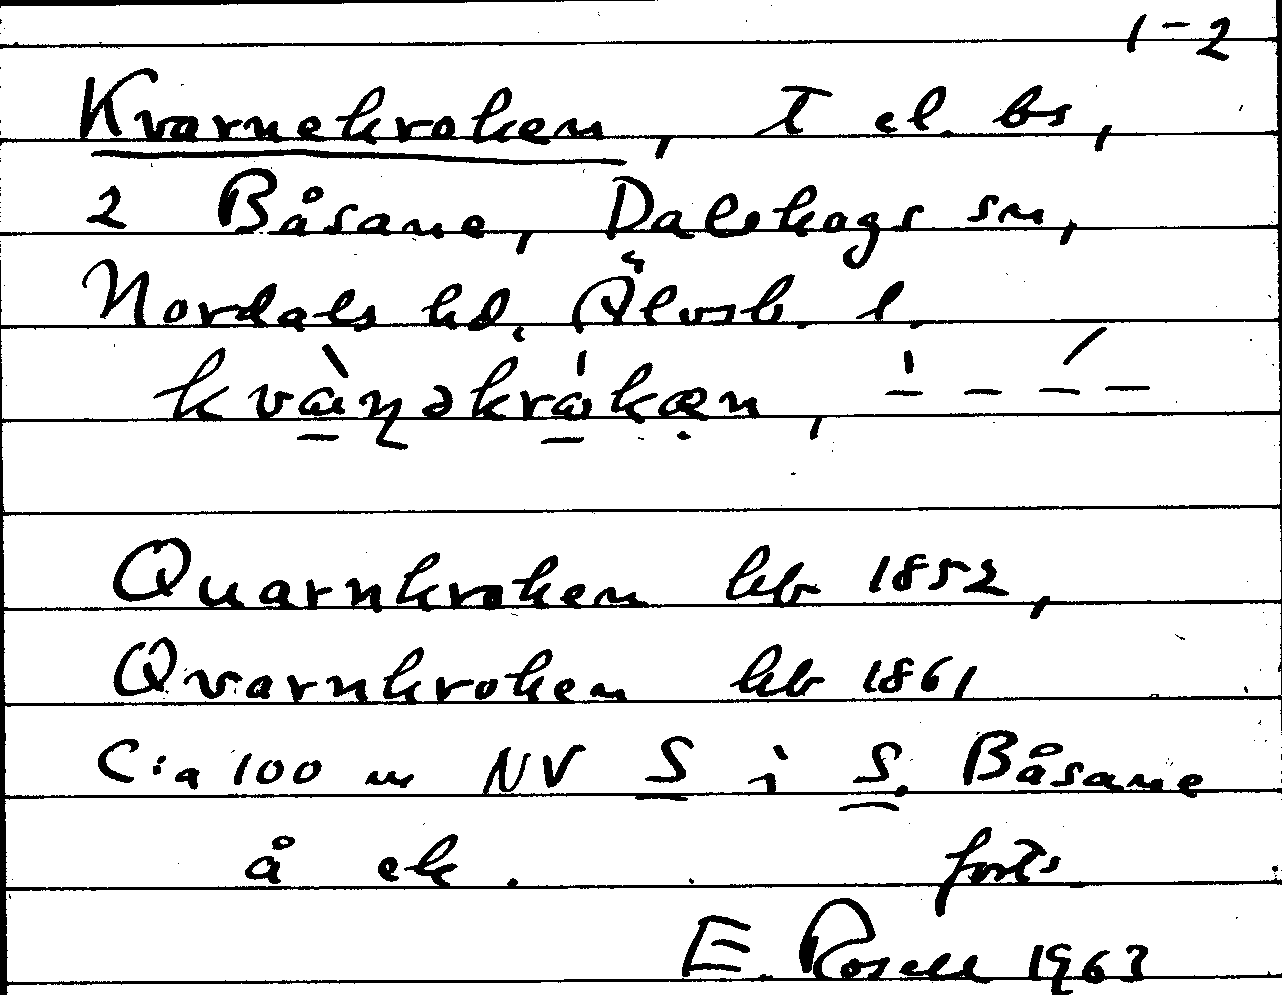 1-2
Kvarnekroken, T el. bs,
2 Båsane, Dalskogs sn,
Nordals hd. Älvsb. l.
Quarnkroken hb 1852,
Qvarnkroken hb 1861
C:a 100 m NV S i S. Båsane
å ek. forts
E. Rosell 1963